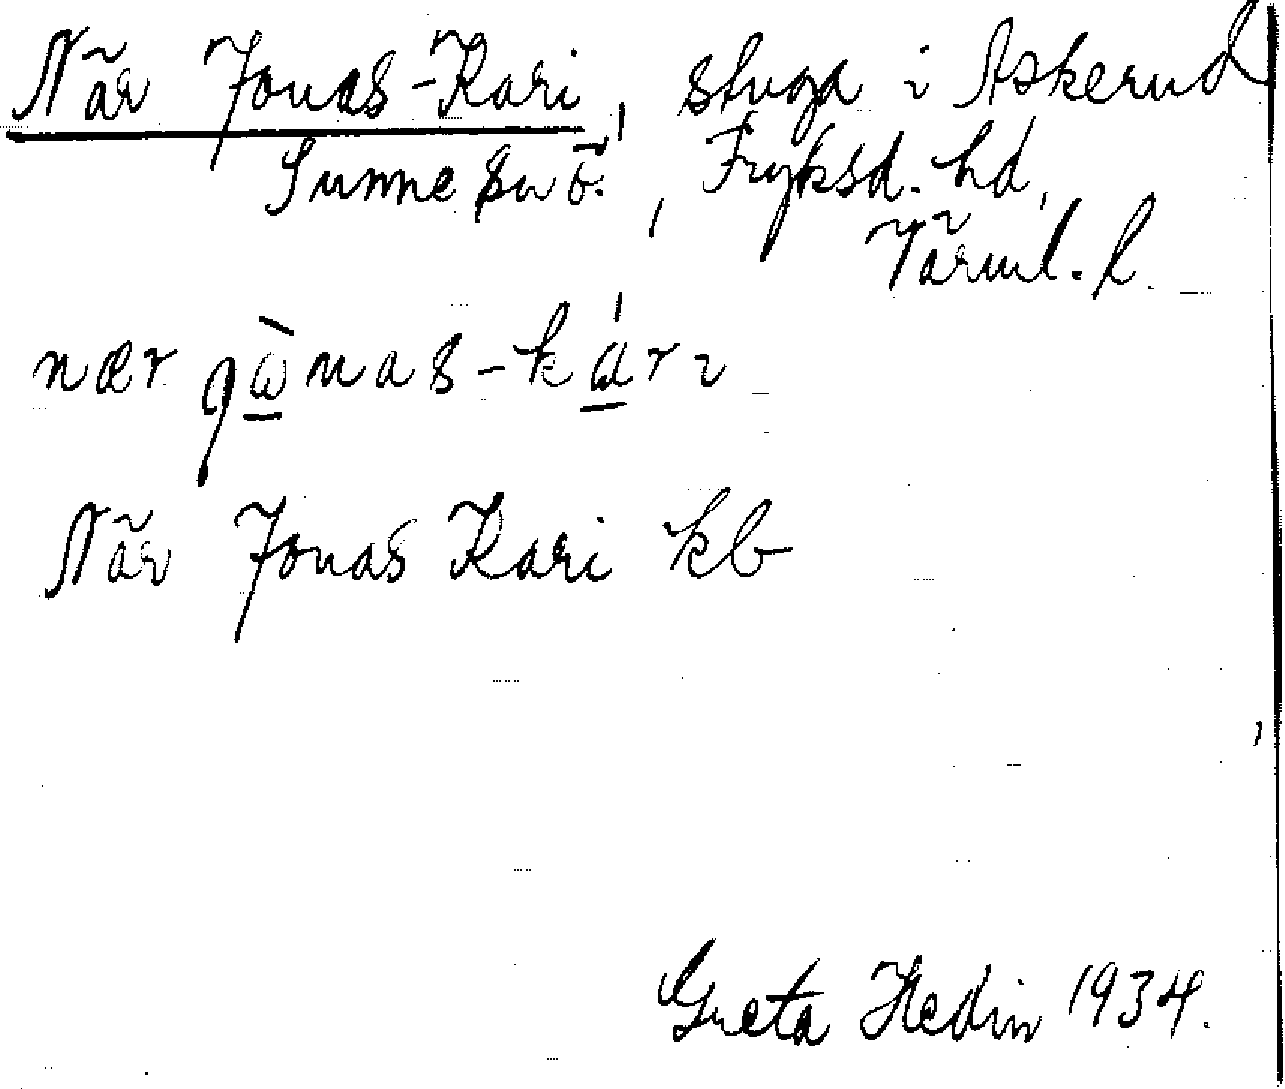 När Jonas-Kari, stuga i Askerud
Sunne sn ö., Fryksd. hd,
Värml. l.
När Jonas Kari kb
Greta Hedin 1934.